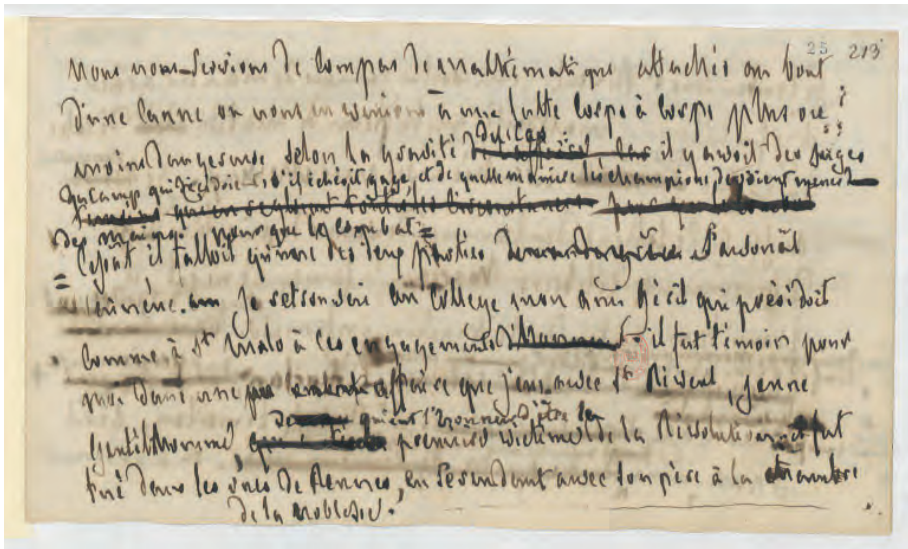 25 213
Nous nous servions de compas de mathématique attachés au bout
d'une canne ou nous en venions à une lutte corps à corps plus ou
moins dangereuse selon la gravité du cas : il y avoit des juges
du camp qui décidoient s'il échéoit gage, et de quelle manière les champions devoient mener
des mains. pour que le combat
cessât il falloit qu'une des deux parties s'avouât
vaincue. Je retrouvai au college mon ami Gesril qui présidoit
comme à St Malo à ces engagements. il fut témoin pour
moi dans une affaire que j'eus avec St Riveul, jeune
gentilhomme, qui eut l'honneur d'être la
première victime de la Révolution fut
tué dans les rues de Rennes, en se rendant avec son père à la chambre
de la noblesse.